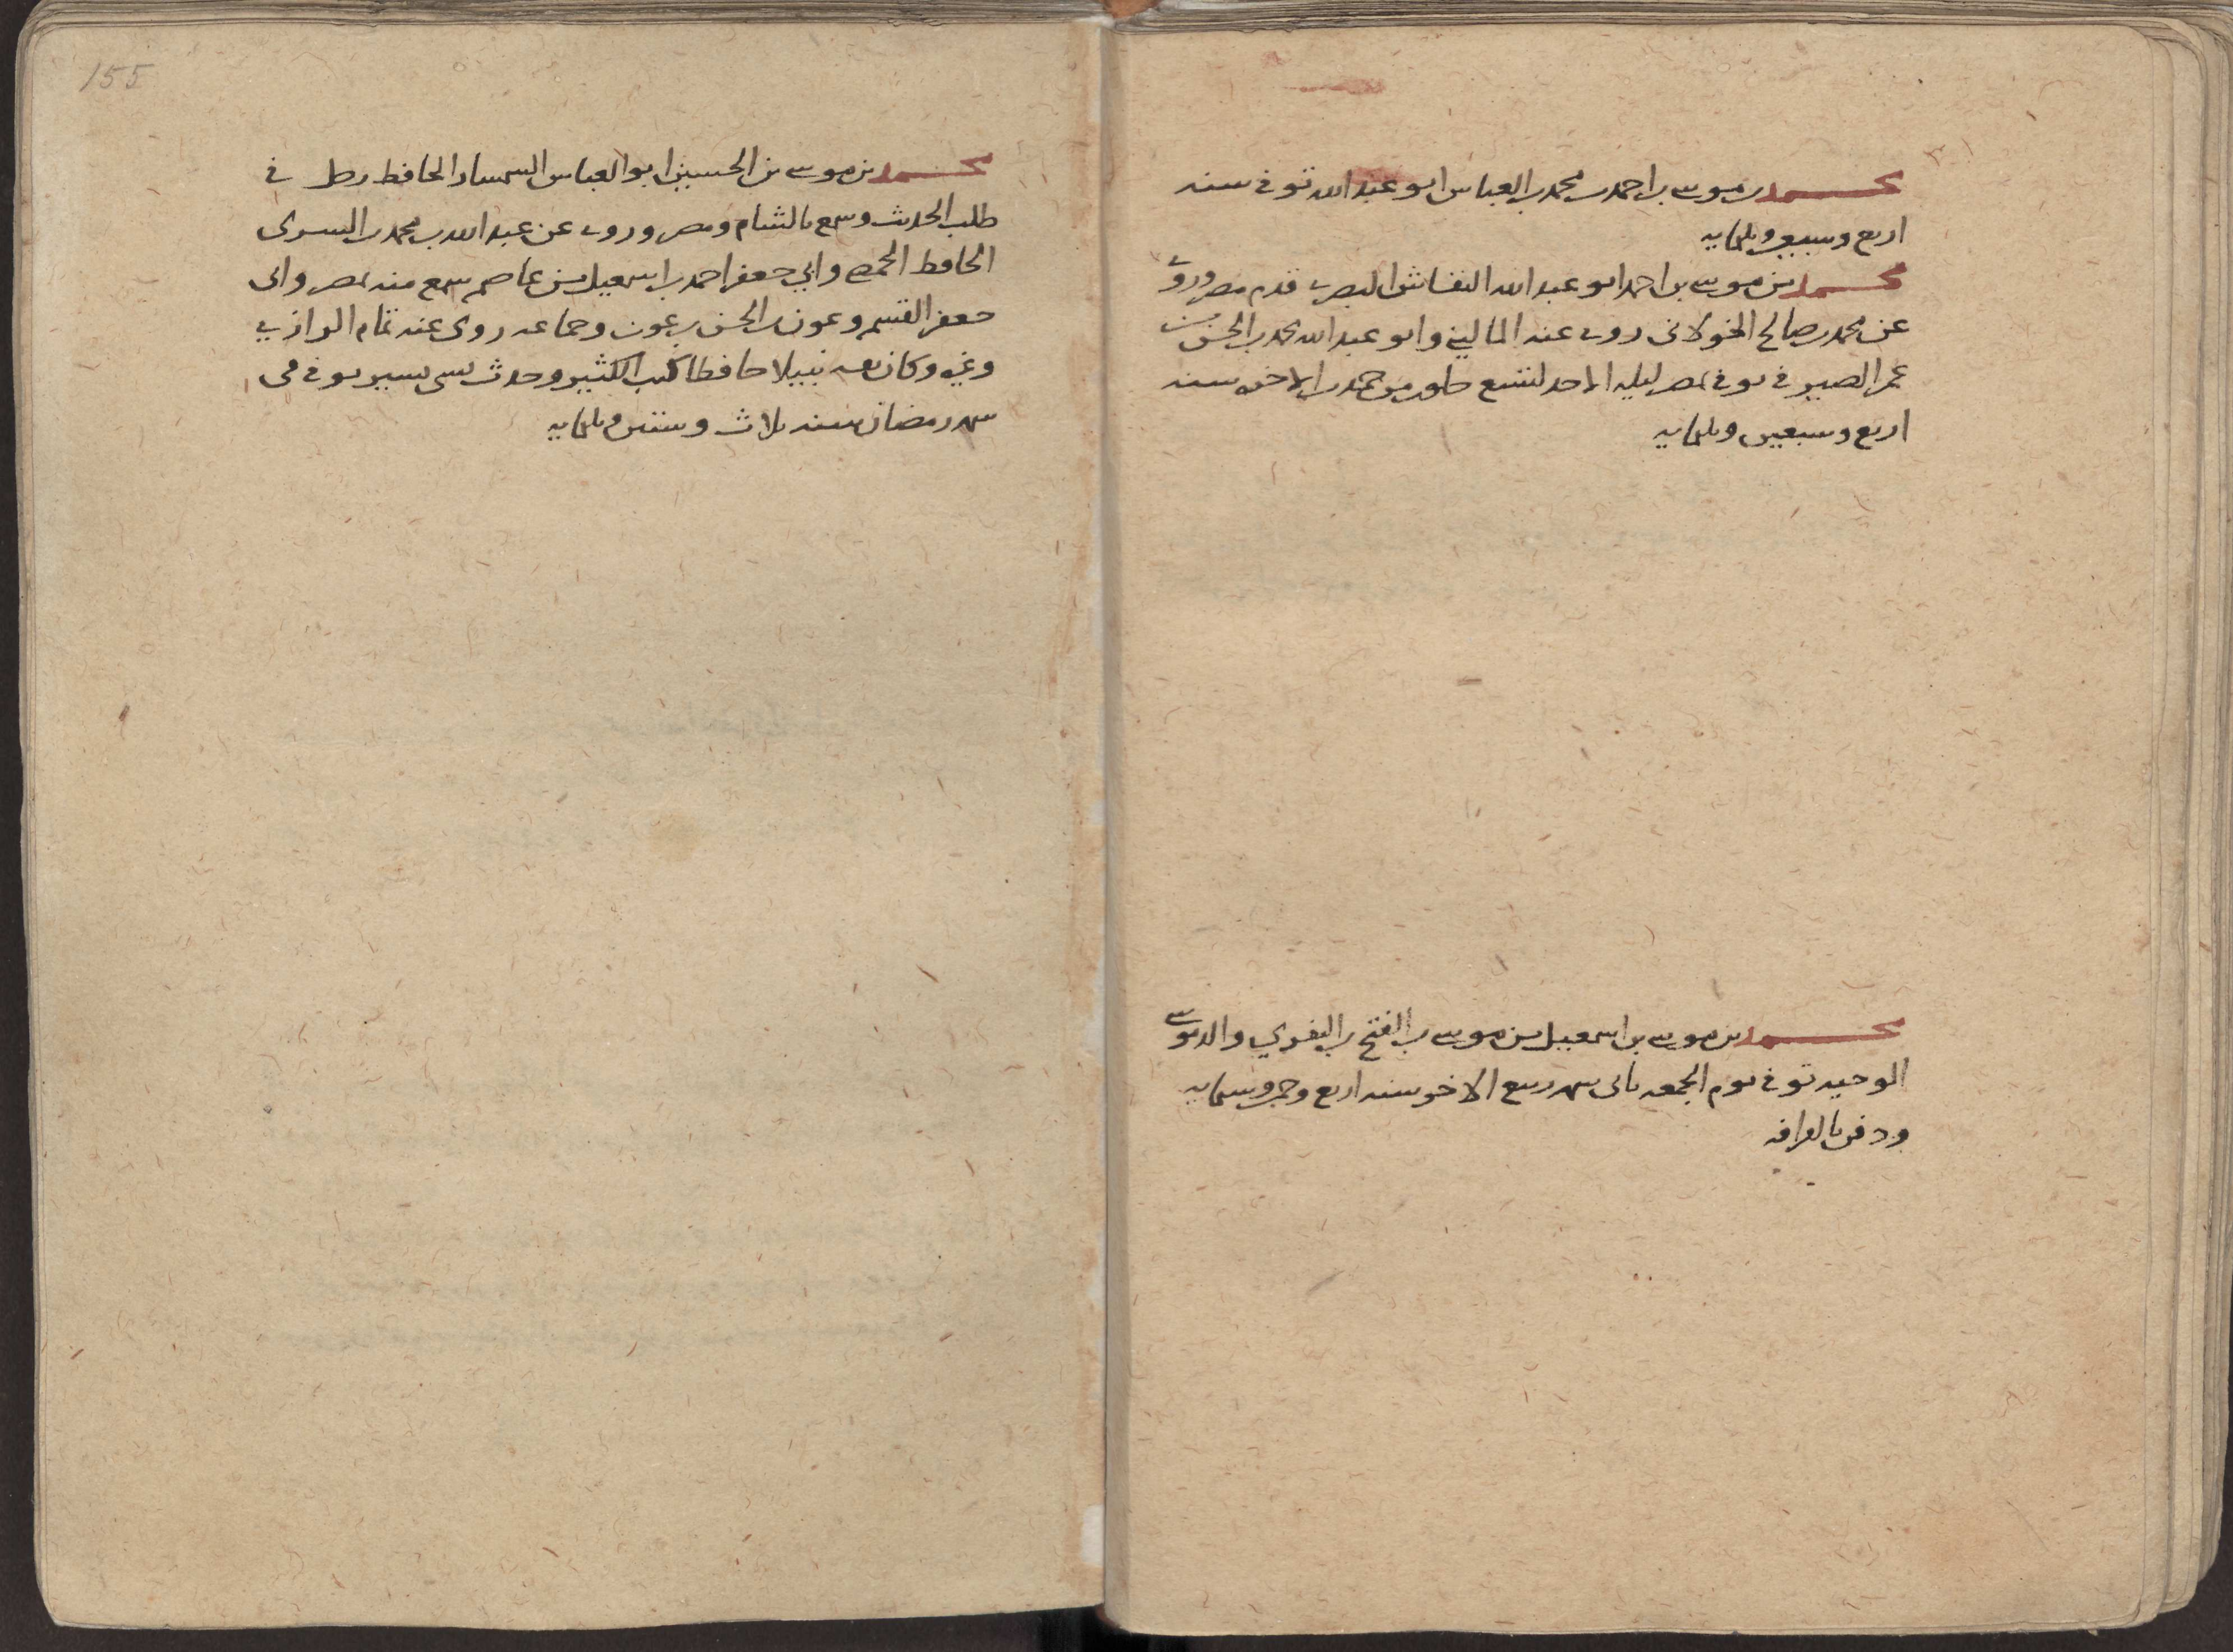 محمد بن موسى بن احمد بن محمد بن العباس ابو عبد الله توفى سنه
اربع وسبعين وثلثمايه
محمد بن موسى بن احمد ابو عبد الله النقاش البصرى قدم مصر وروى
عن محمد بن صالح الخولانى روى عنه المالينى وابو عبد الله محمد بن الحسن بن
عمر الصيرفى توفى بمصر ليله الاحد لتسع خلون من جمدى الاخره سنه
اربع وسبعين وثلثمايه
محمد بن موسى بن اسمعيل بن موسى بن الفتح بن
الوحيد توفى يوم الجمعه ثانى شهر ربيع الاخر سنه اربع وستمايه
ودفن بالقرافه
155
محمد بن موسى بن الحسين ابو العباس السمسار الحافظ رحل فى
طلب الحديث وسمع بالشام ومصر وروى عن عبد الله بن محمد بن السرى
الحافظ الحمصى وابي جعفر احمد بن اسمعيل بن عاصم سمع منه بمصر وابى
جعفر القسم وعون بن الحسن بن عون وجماعه روى عنه تمام الرازي
وغيره وكان ثقه نبيلا حافظا كتب الكثير وحدث بشى يسير توفى فى
شهر رمضان سنه ثلاث وستين وثلثمايه